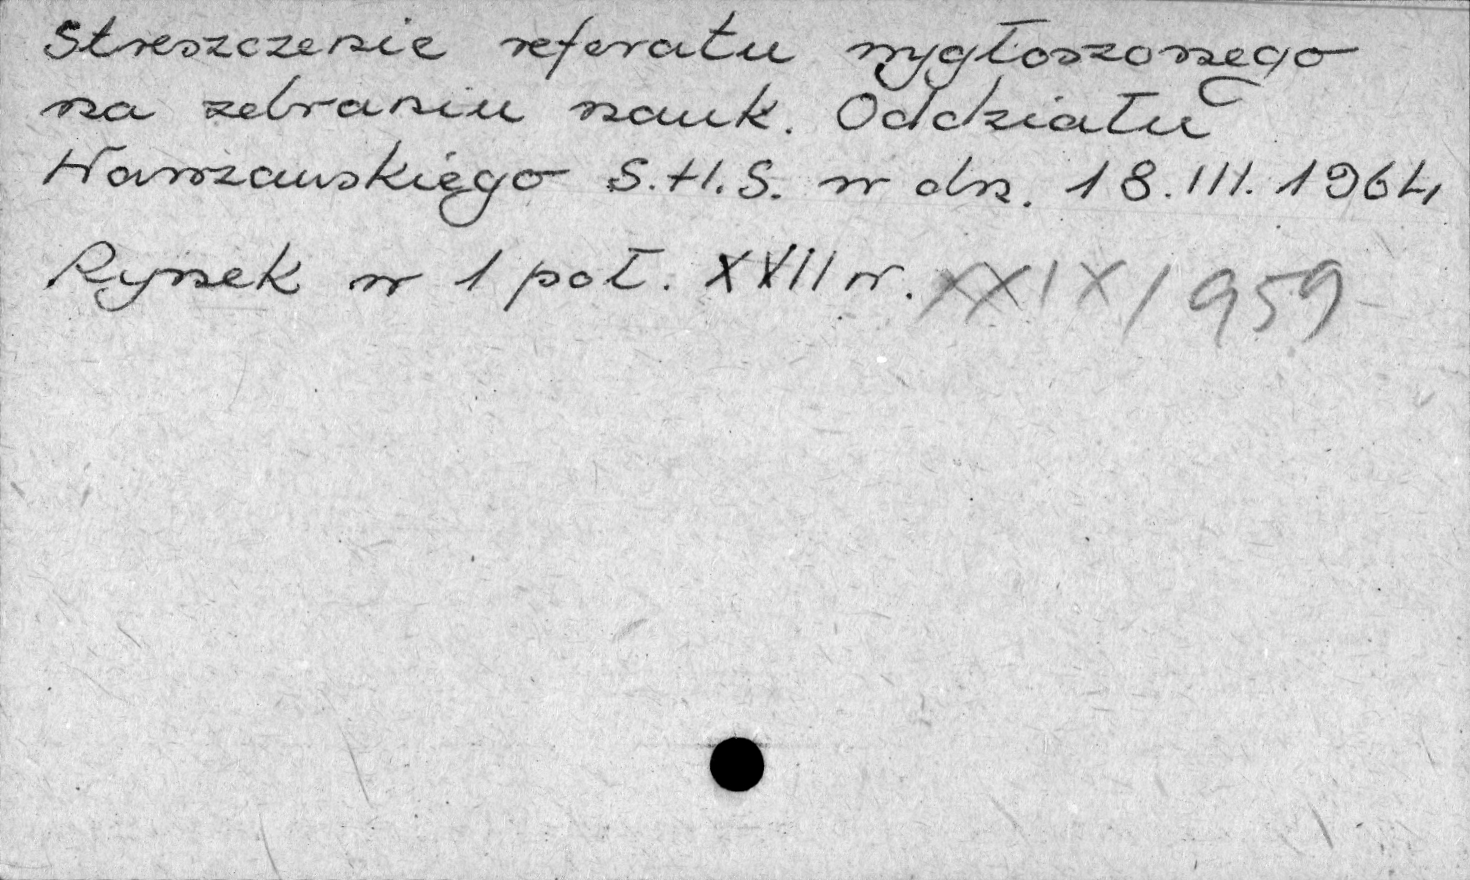 Streszczenie referatu wygłoszonego
na zebraniu nauk. Oddziału
Warszawskiego S.H.S. w dn. 18.III.1964,
Rynek w 1 poł. XVII w. XXIX/959